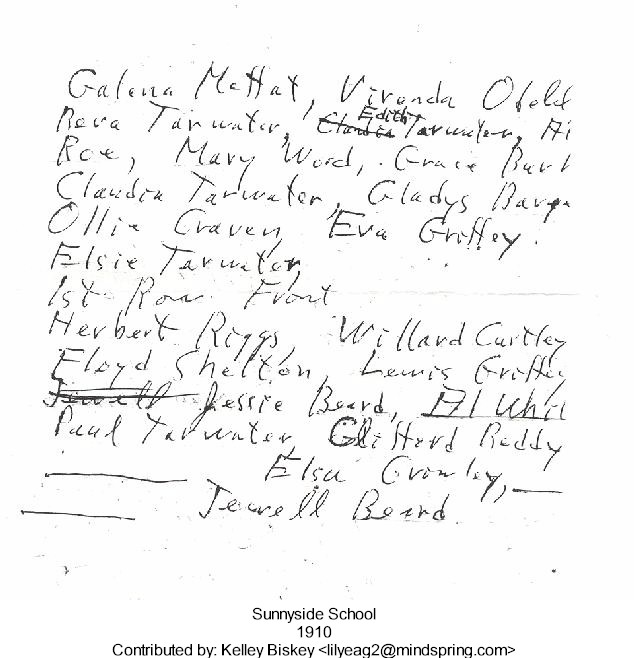 Galena Moffat, Virenda Ofeld
Reva Tarwater, Edith Tarwater,
Roe, Mary Word, Grace Burk
Claudia Tarwater, Gladys
Ollie Craven, Eva Griffey.
Elsie Tarwater,
1st Row Front
Herbert Riggs, Willard Curtley
Floyd Shelton, Lewis Griffey
Jewell Jessie Beard,
Paul Tarwater, Clifford Reddy
Elsa Crowley,
Jewell Beard
Sunnyside School
1910
Contributed by: Kelley Biskey <lilyeag2@mindspring.com>